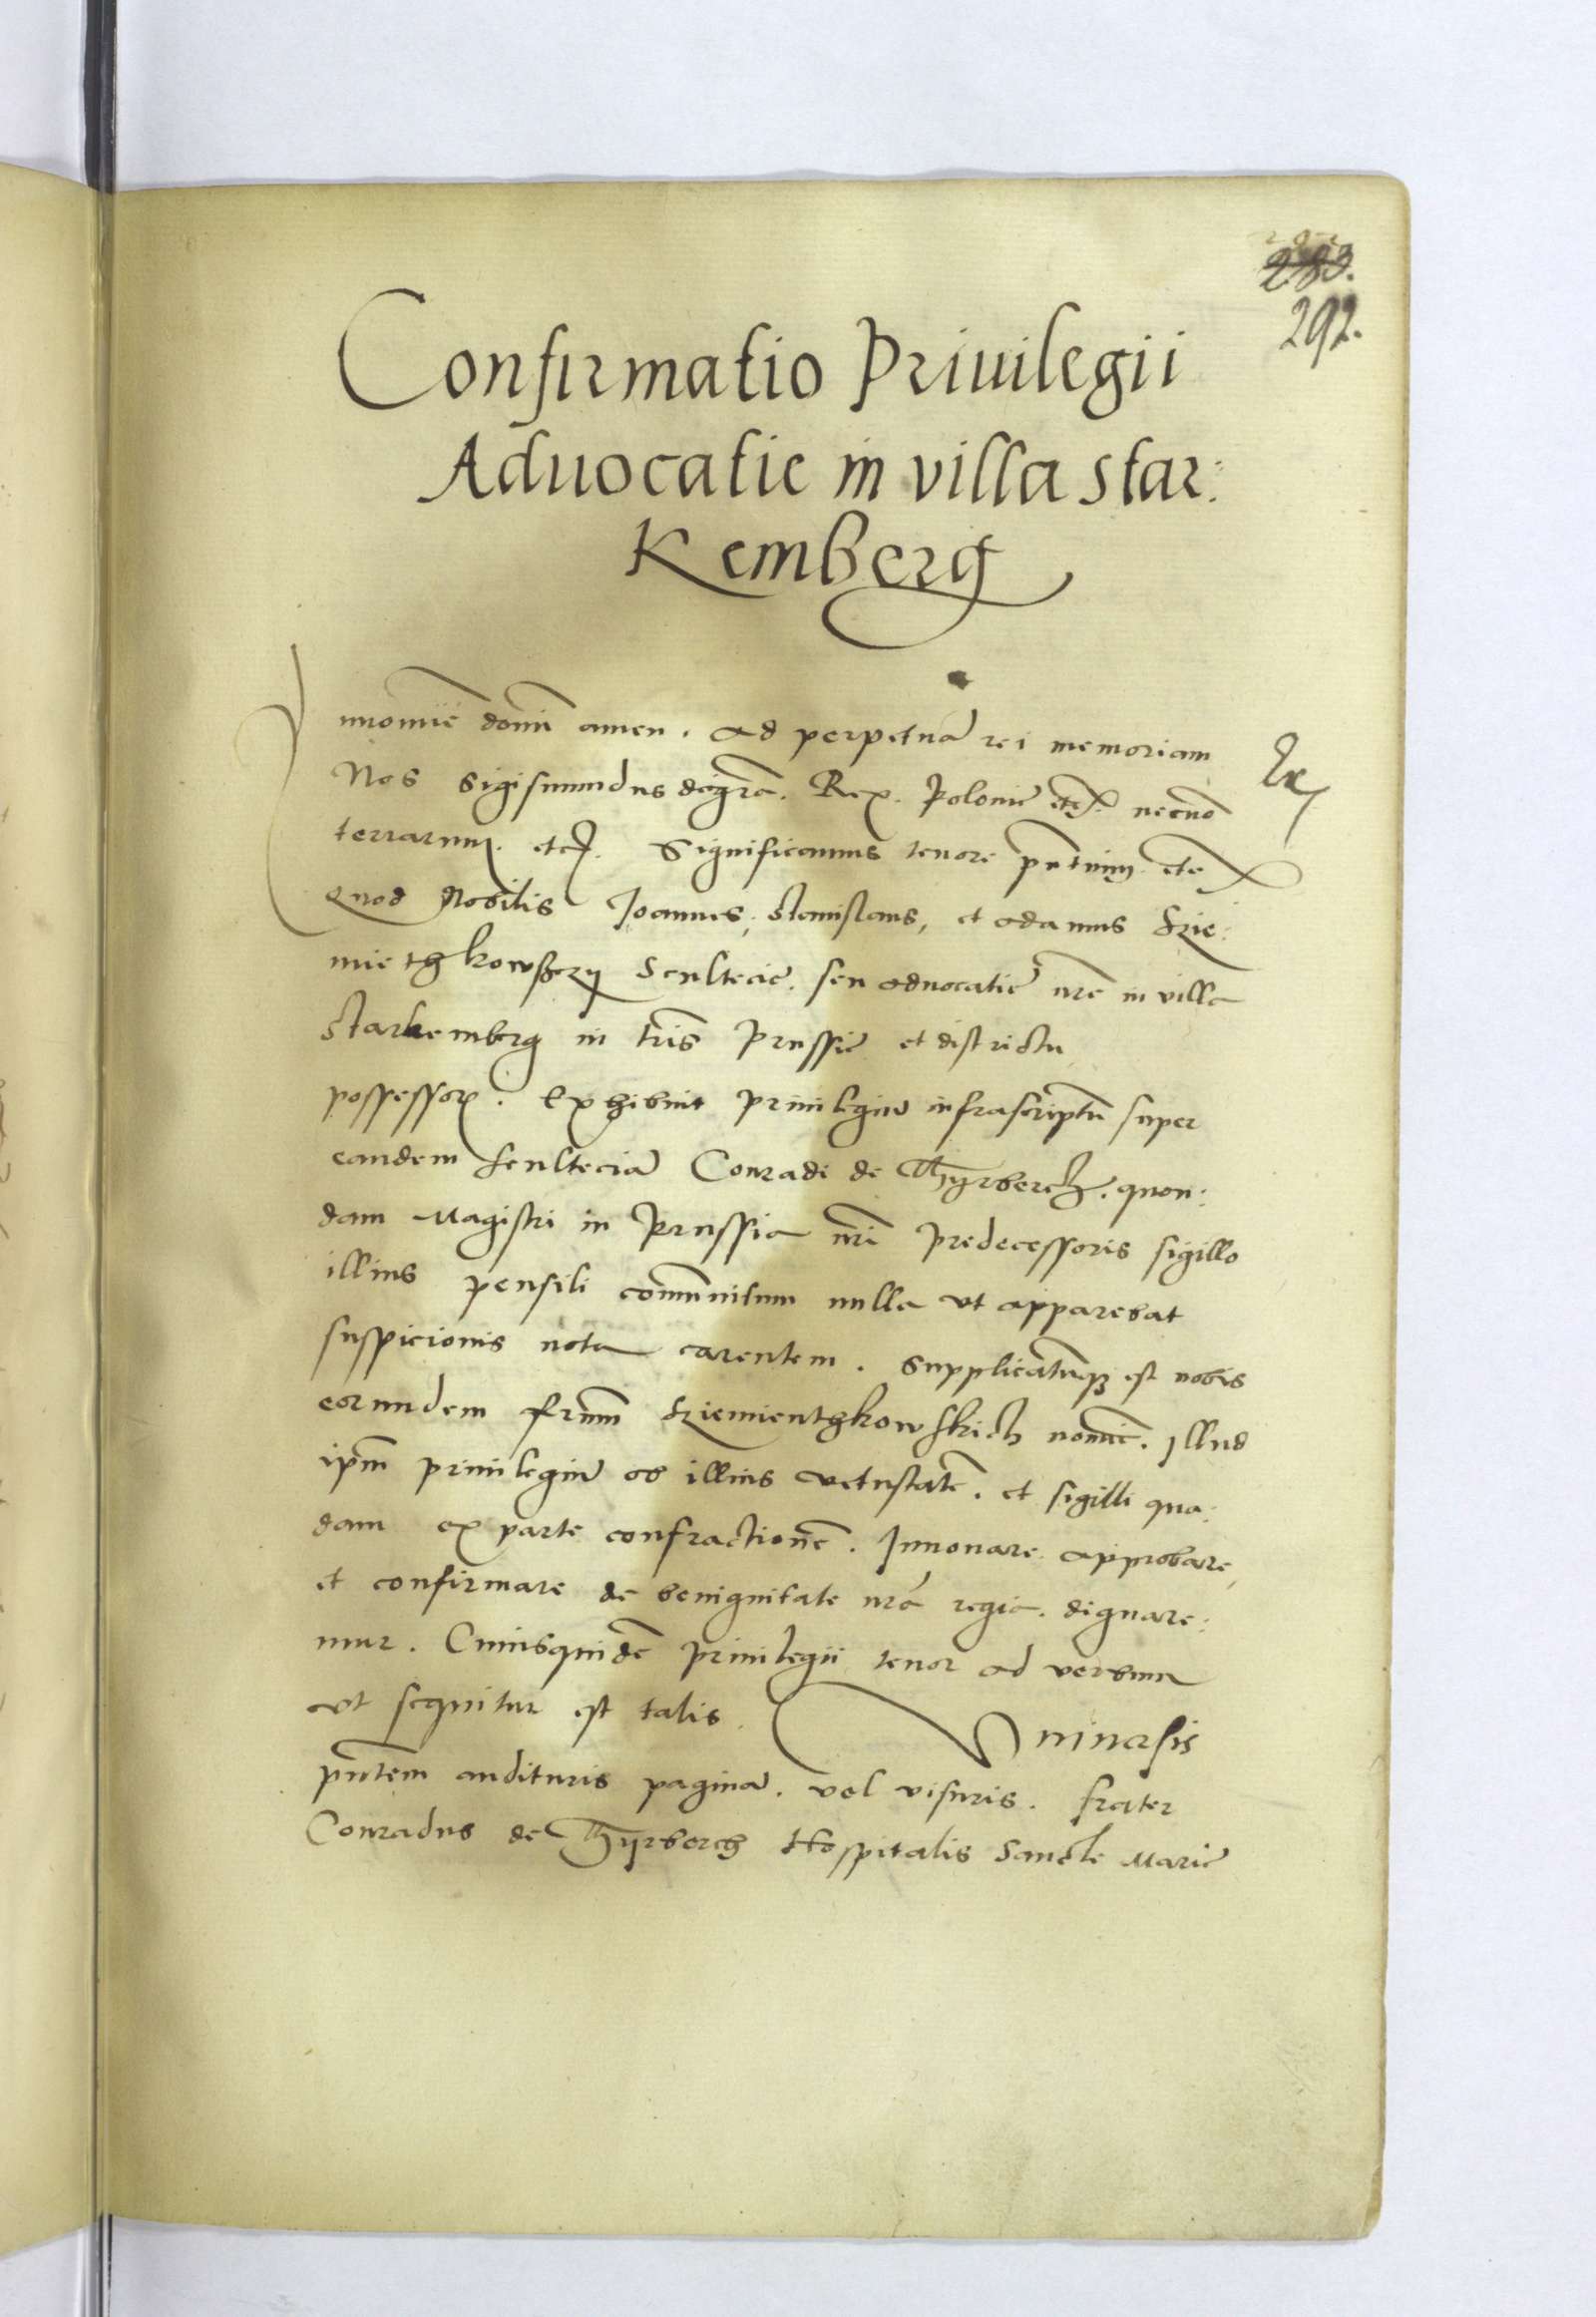 283.
292.
Confirmatio Priuilegii
Aduocatie in villa Star:
Kemberg
In noīe domī amen. Ad perpetuā rei memoriam
Nos Sigismundus dei grā. Rex. Polonie etc. necnō
terrarum. etc. Significamus tenore pntium etc
quod Nobilis Joannes, Stanislaus, et Adamus
Sculteciē. seu aduocatie nrē in villa
Starkemberg in tris Prussie et districtu
possessor. Exhibuit priuilegiū infrascriptū super
eandem sculteciā Conradi de Thyrberch. quon:
dam Magistri in Prussia nrī predecessoris sigillo
illius pensili communitum nulla vt apparebat
suspicionis nota carentem. Supplicatumq; est nobis
eorundem frum nomīe. Illud
ipm priuilegiū ob illius vetustatē. et sigilli qua:
dam ex parte confractionē. Innouare approbare,
et confirmare de benignitate nrā regia. dignare:
mur. Cuiusquidē priuilegii tenor ad verbum
vt sequitur est talis. Vniuersis
pntem audituris paginā. vel visuris. frater
Conradus de Thyrberch Hospitalis Sancte Marie